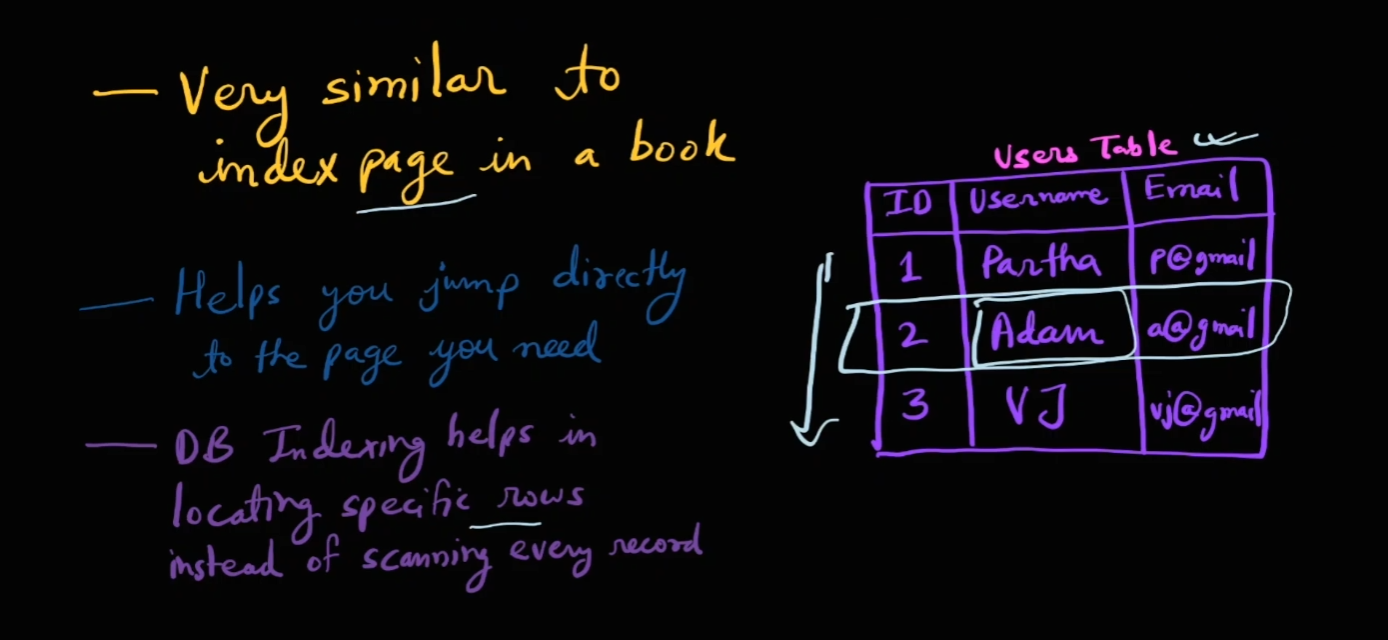 — Very similar to
index page in a book
— Helps you jump directly
to the page you need
— DB Indexing helps in
locating specific rows
instead of scanning every record
Users Table
ID Username Email
1 Partha p@gmail
2 Adam a@gmail
3 VJ vj@gmail